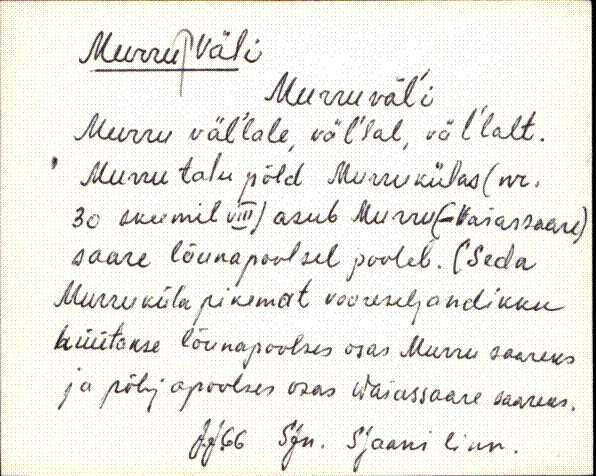 Murru väli
Murruväl'i
Murru väl'lale, väl'lal, väl'lalt.
Murru talu põld Murrukülas (nr.
30 skeemil VIII) asub Murru (=Waiassaare)
saare lõunapoolsel poolel. (Seda
Murruküla pikemat vooreseljandikku
hüütakse lõunapoolses osas Murru saareks
ja põhjapoolses osas Waiassaare saareks.
SJn. S'Jaani linn.